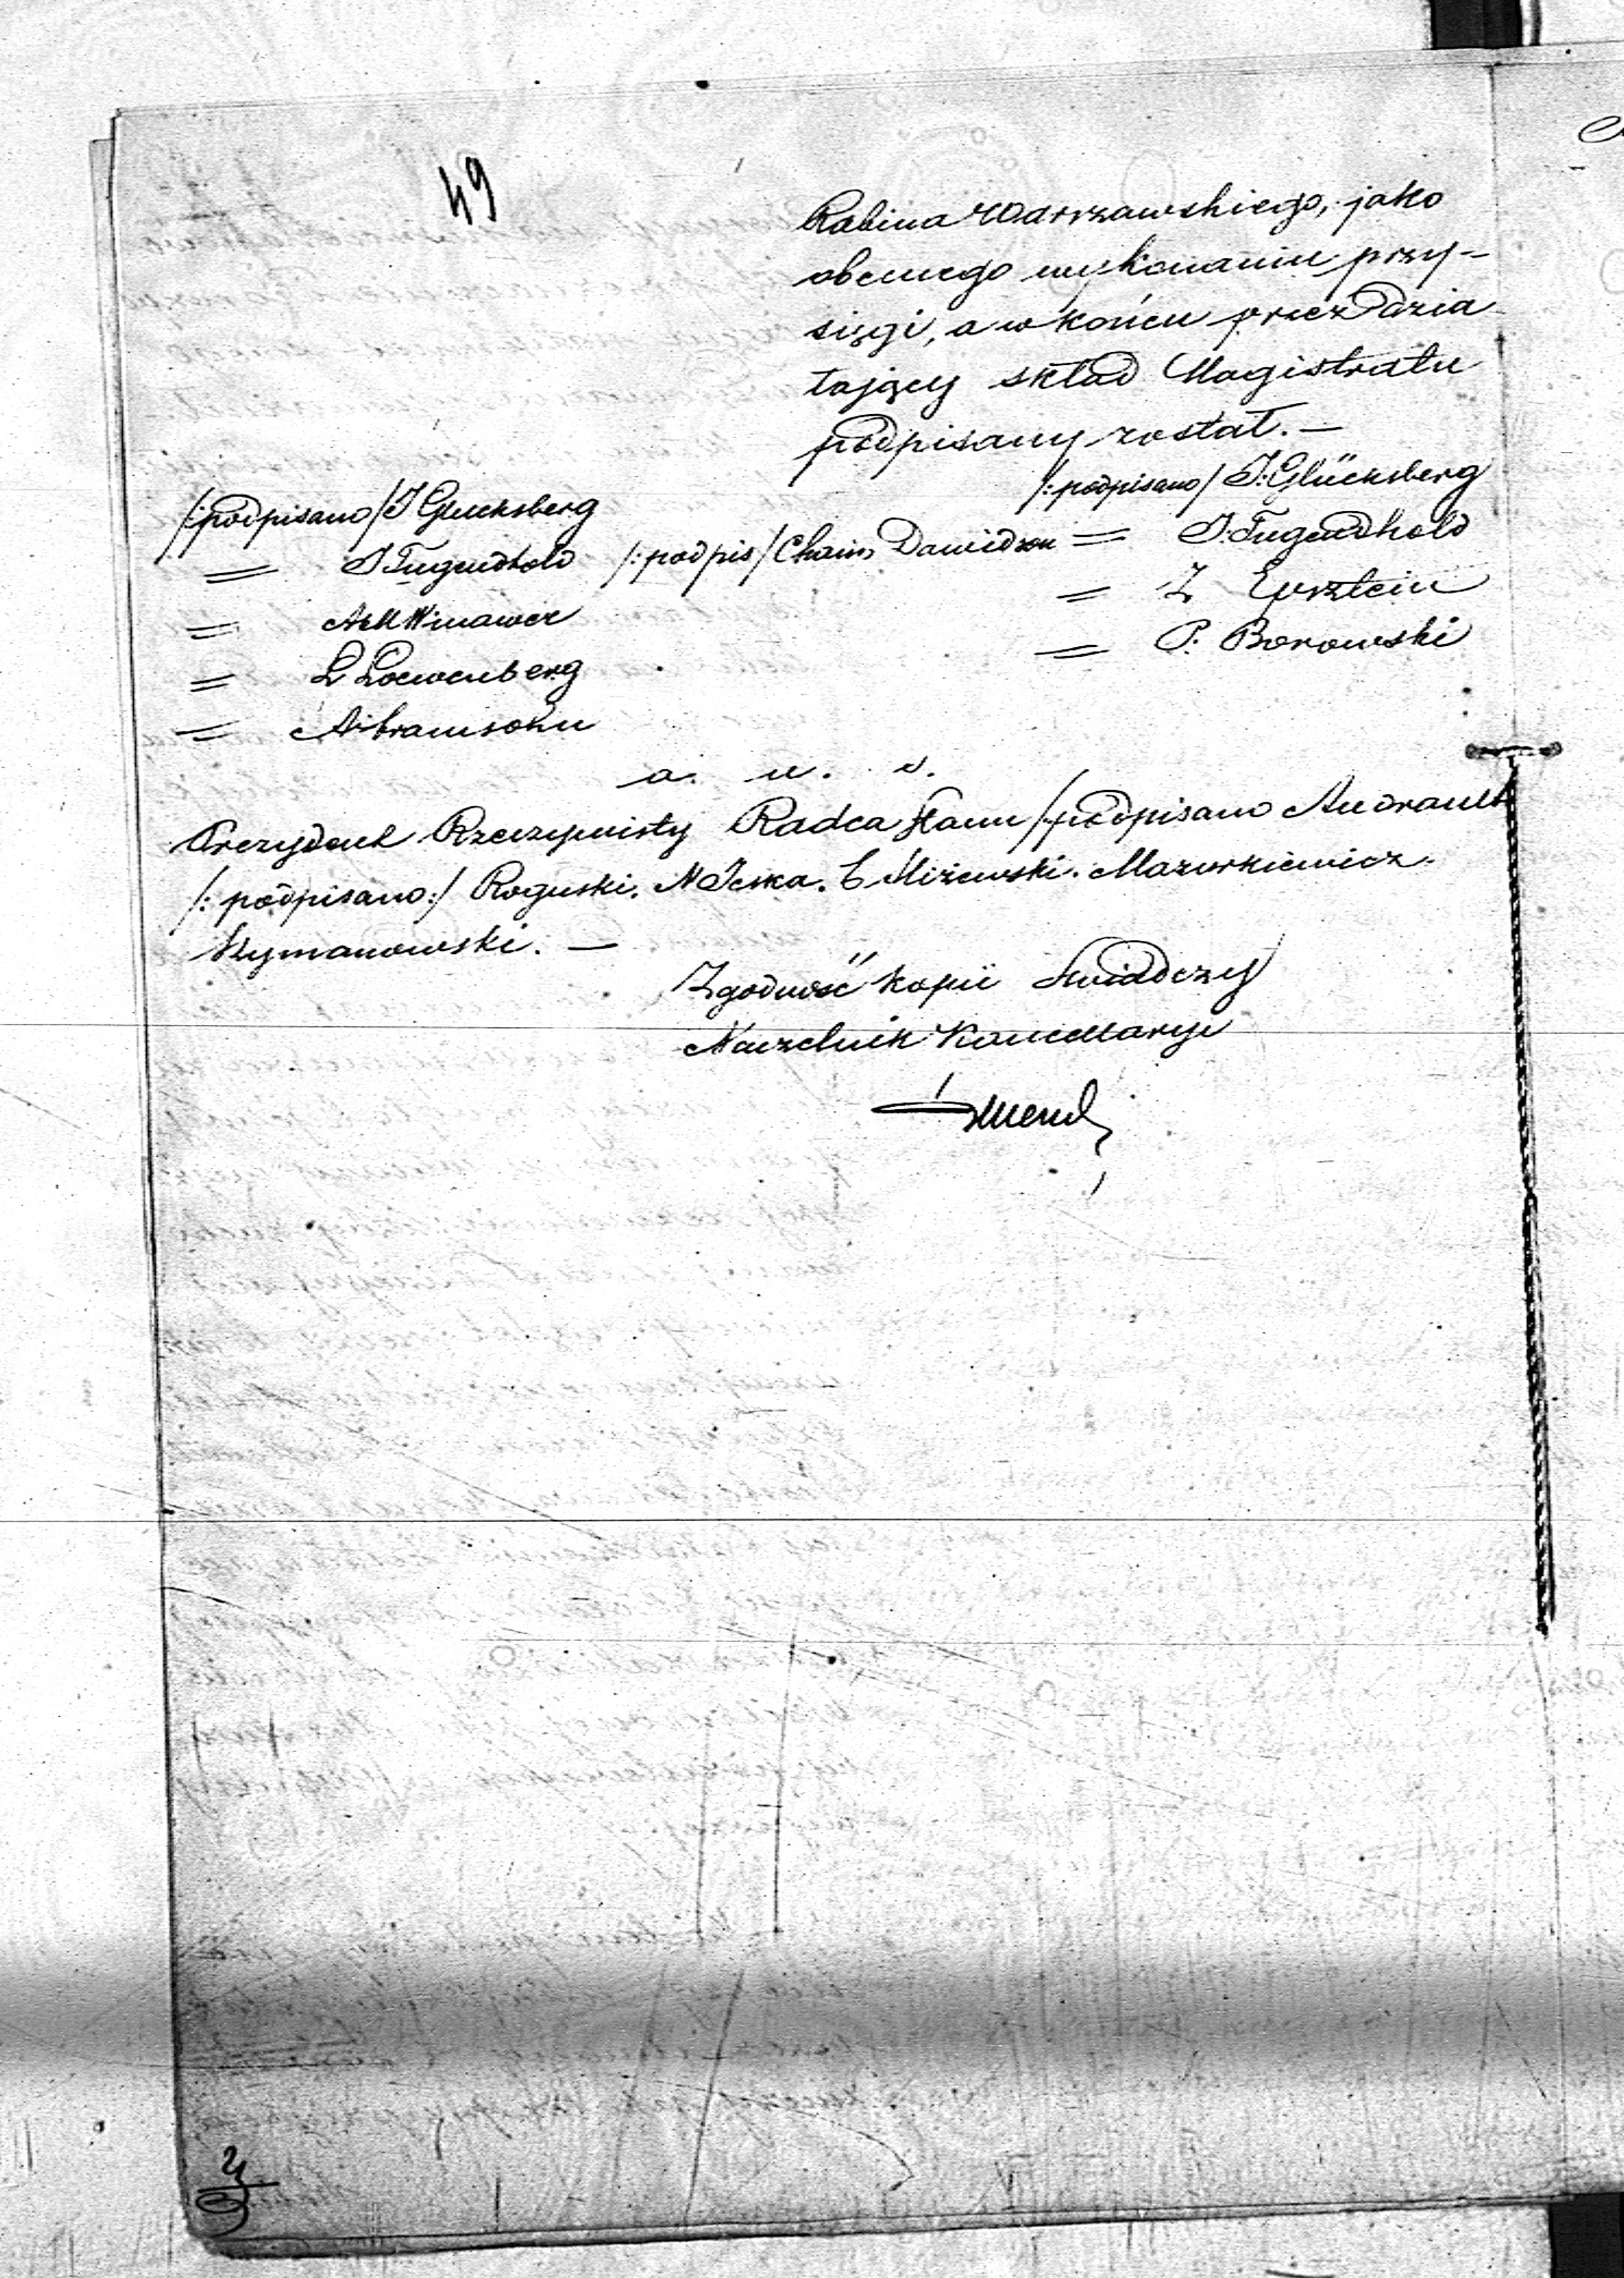 49
Rabina Warszawskiego, jako
obecnego wykonaniu przy-
sięgi, a w końcu przez dzia
łający skład Magistratu
podpisany został. —
/:podpisano/ J: Glücksberg
/:podpisano/ J Glucksberg
= J Tugendhold /:podpis/ Chaim Dawidson = J. Tugendhold
= Z Epsztein
= A&M Winawer
= P. Borowski
= L Loewenberg
= Abramsohn
a. u. s.
Prezydent Rzeczywisty Radca Stanu /podpisano Andrault
/:podpisano:/ Roguski. N Jeska. Miżewski. Mazurkiewicz.
Szymanowski. —
Zgodność kopii Swiadczy
Naczelnik Kancellaryi